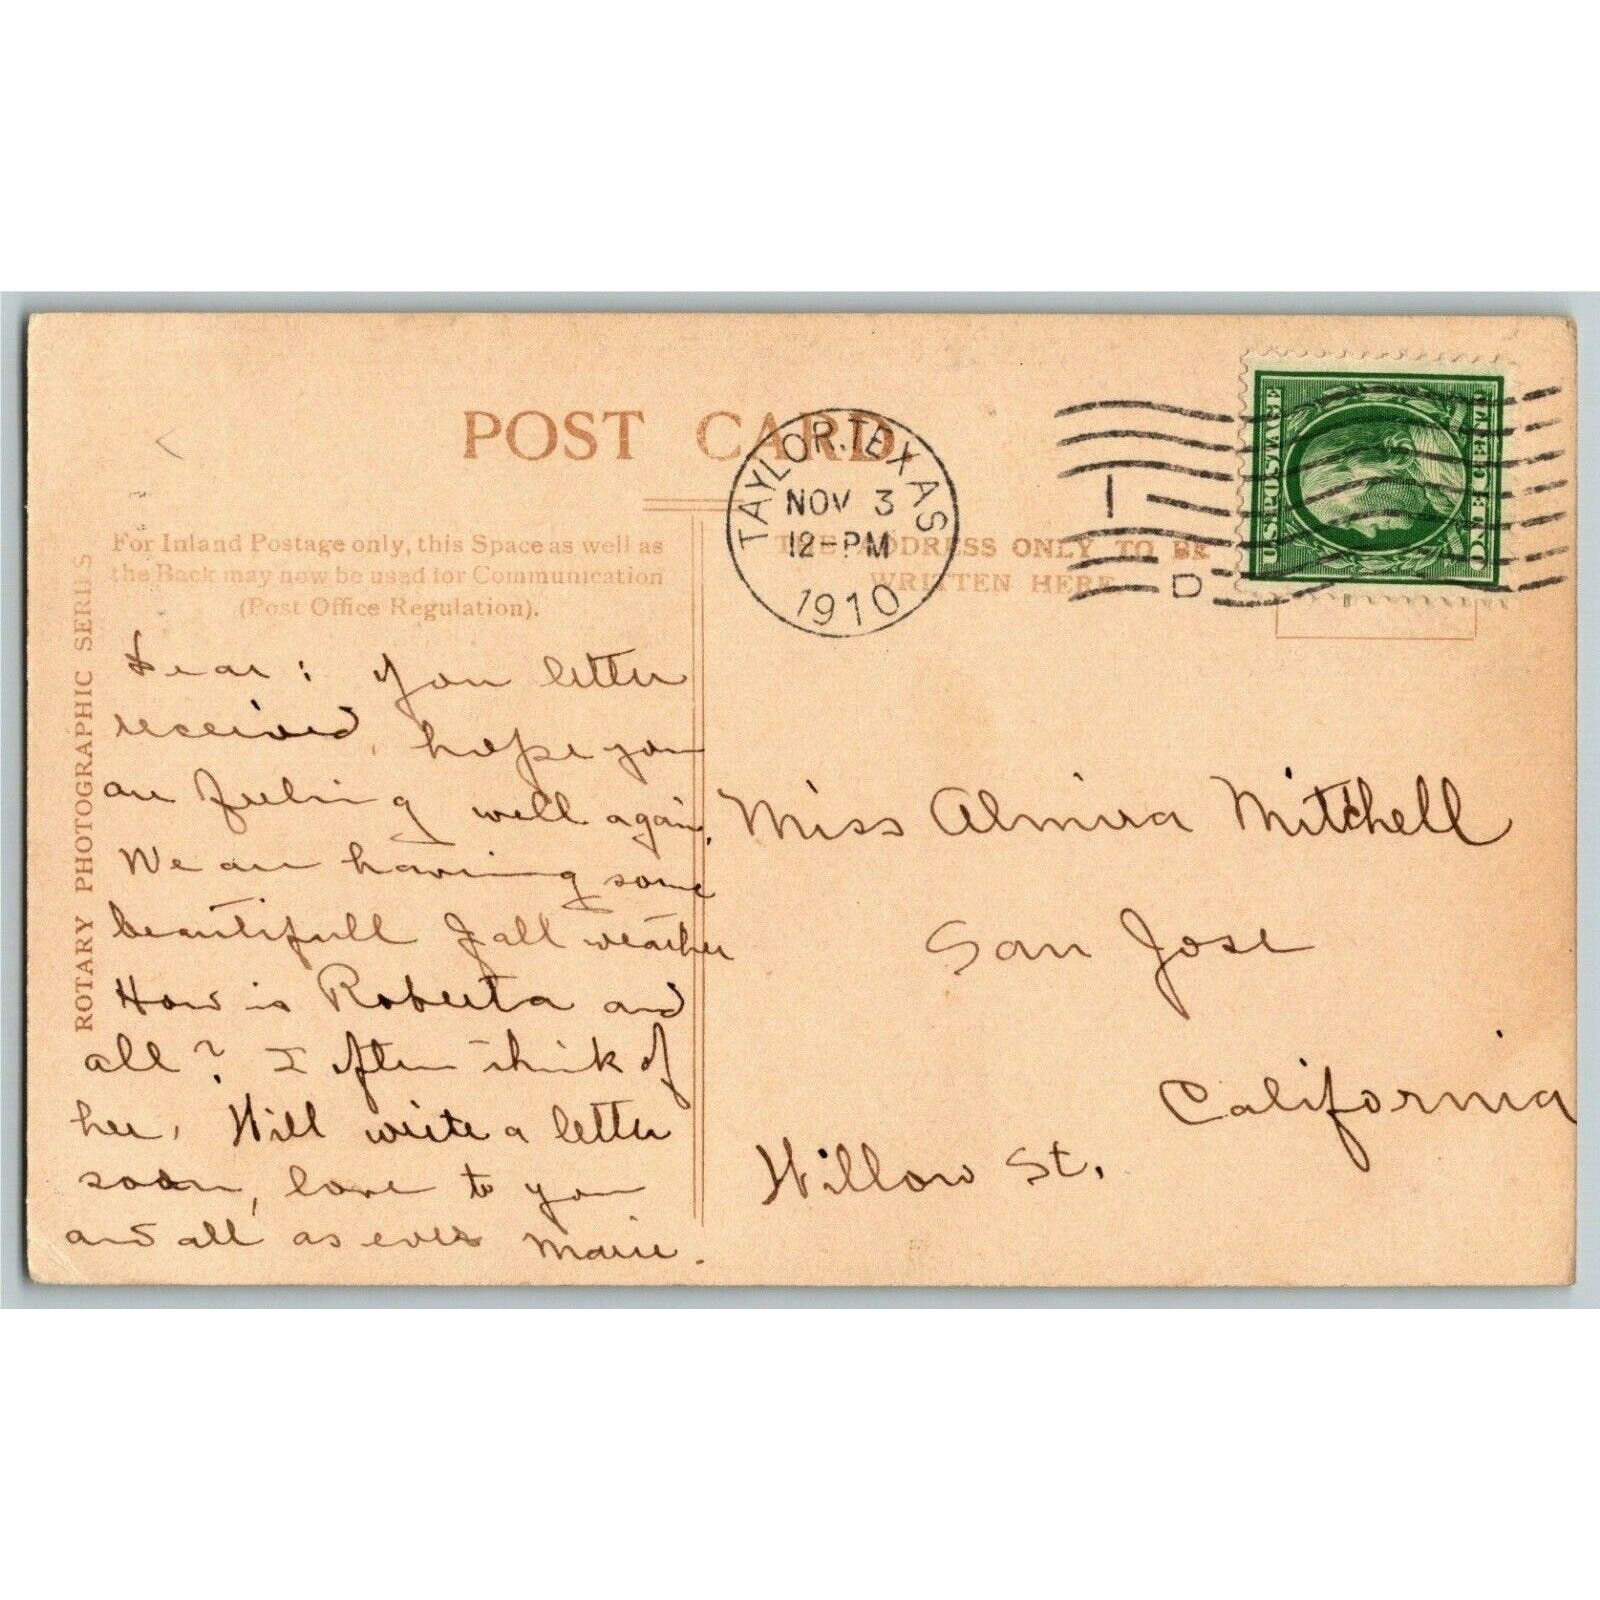 POST CARD
TAYLOR, TEXAS
NOV 3
12-PM
1910
1
D
U.S. POSTAGE
ONE CENT
For Inland Postage only, this Space as well as
the Back may now be used for Communication
(Post Office Regulation).
THE ADDRESS ONLY TO BE
WRITTEN HERE
ROTARY PHOTOGRAPHIC SERIES
Dear: Your letter
received, hope you
are feeling well again.
We are having some
beautifull fall weather
How is Roberta and
all? I often think of
her. Will write a letter
soon, love to you
and all as ever Marie.
Miss Almira Mitchell
San Jose
California
Willow St.